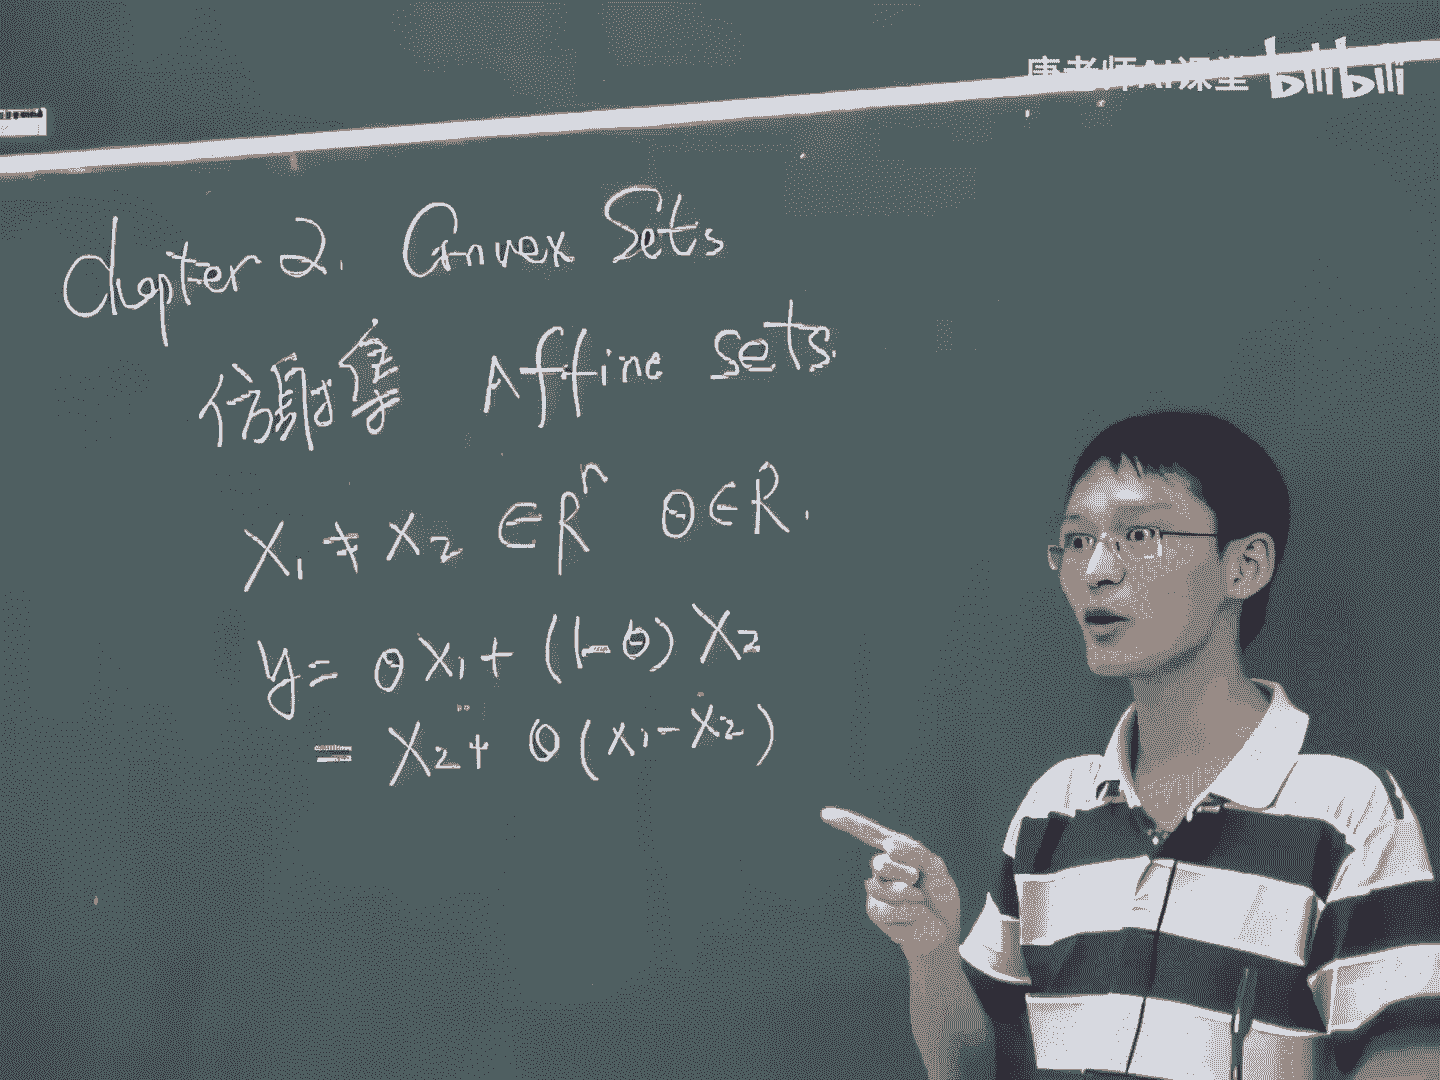 唐老师AI课堂 bilibili
Chapter 2. Convex Sets
仿射集 Affine sets.
X₁ ≠ X₂ ∈ Rⁿ θ ∈ R.
y = θX₁ + (1-θ)X₂
= X₂ + θ(X₁-X₂)